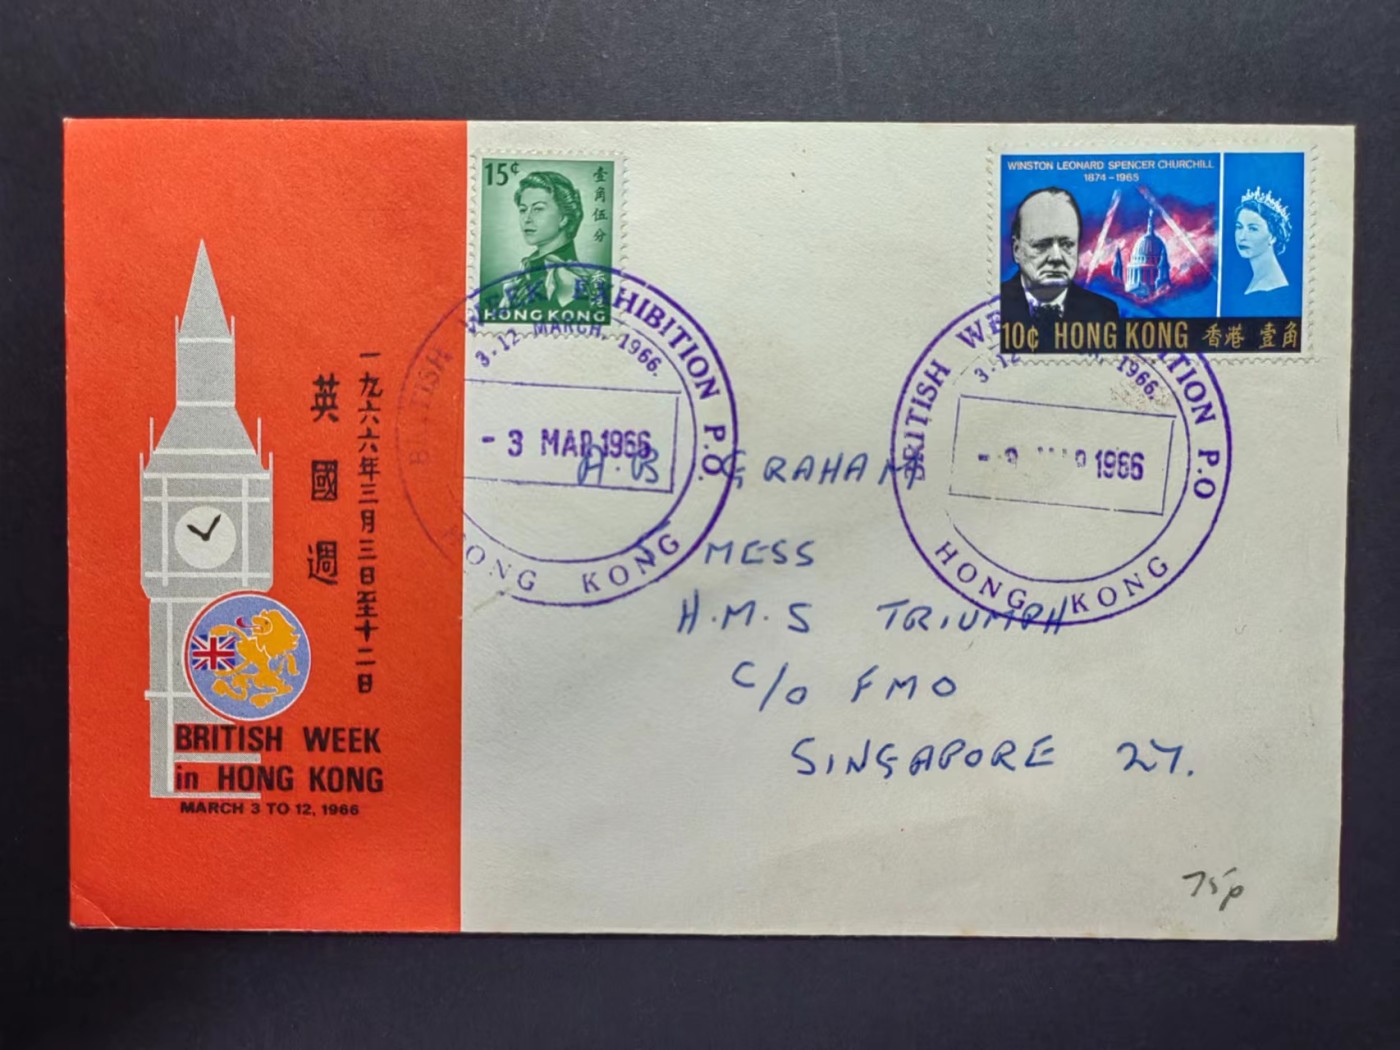 一九六六年三月三日至十二日
英國週
BRITISH WEEK
in HONG KONG
MARCH 3 TO 12, 1966
15¢
壹角伍分
HONG KONG
WINSTON LEONARD SPENCER CHURCHILL
1874-1965
10¢ HONG KONG 香港 壹角
BRITISH WEEK EXHIBITION P.O.
3.12 MARCH, 1966.
- 3 MAR 1966
HONG KONG
BRITISH WE TION P.O
3.12 1966.
1966
HONG KONG
A. B GRAHAM
MESS
H.M.S TRIUMPH
C/O FMO
SINGAPORE 27.
75p